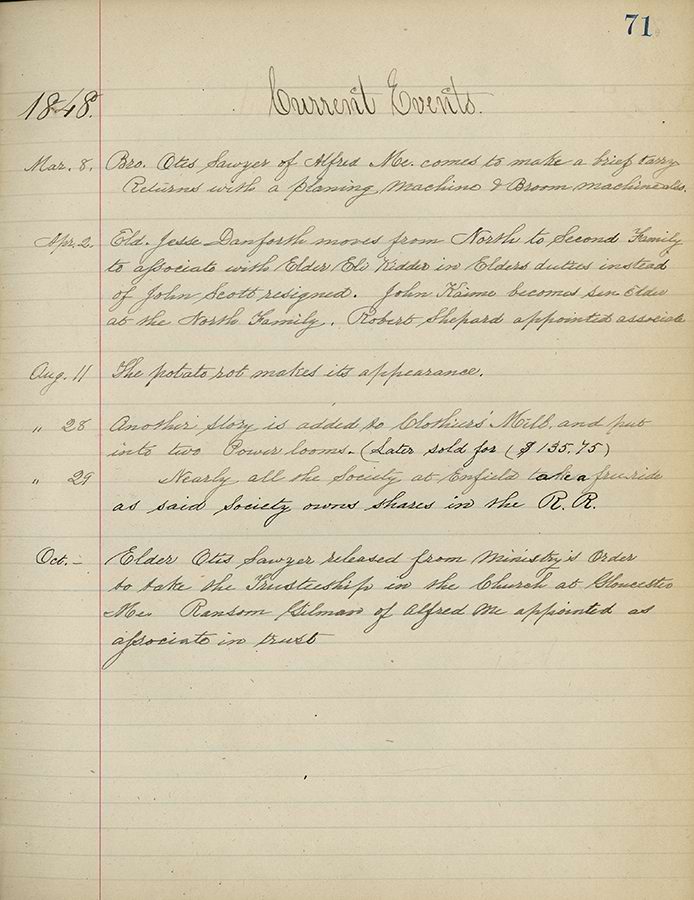 71
Current Events.
1848.
Mar. 8. Bro. Otis Sawyer of Alfred Me. comes to make a brief tarry
Returns with a planing machine & Broom machine also.
Apr. 2. Eld. Jesse Danforth moves from North to Second Family
to associate with Elder Eli Kidder in Elders duties instead
of John Scott resigned. John Kaime becomes sen Elder
at the North Family. Robert Shepard appointed associate
Aug. 11 The potato rot makes its appearance.
" 28 Another story is added to Clothiers' Mill, and put
into two Power looms. (Later sold for ($135.75)
" 29 Nearly all the Society at Enfield take a free ride
as said Society owns shares in the R. R.
Oct. – Elder Otis Sawyer released from Ministry's Order
to take the Trusteeship in the Church at Gloucester
Me. Ransom Gilman of Alfred Me appointed as
associate in trust